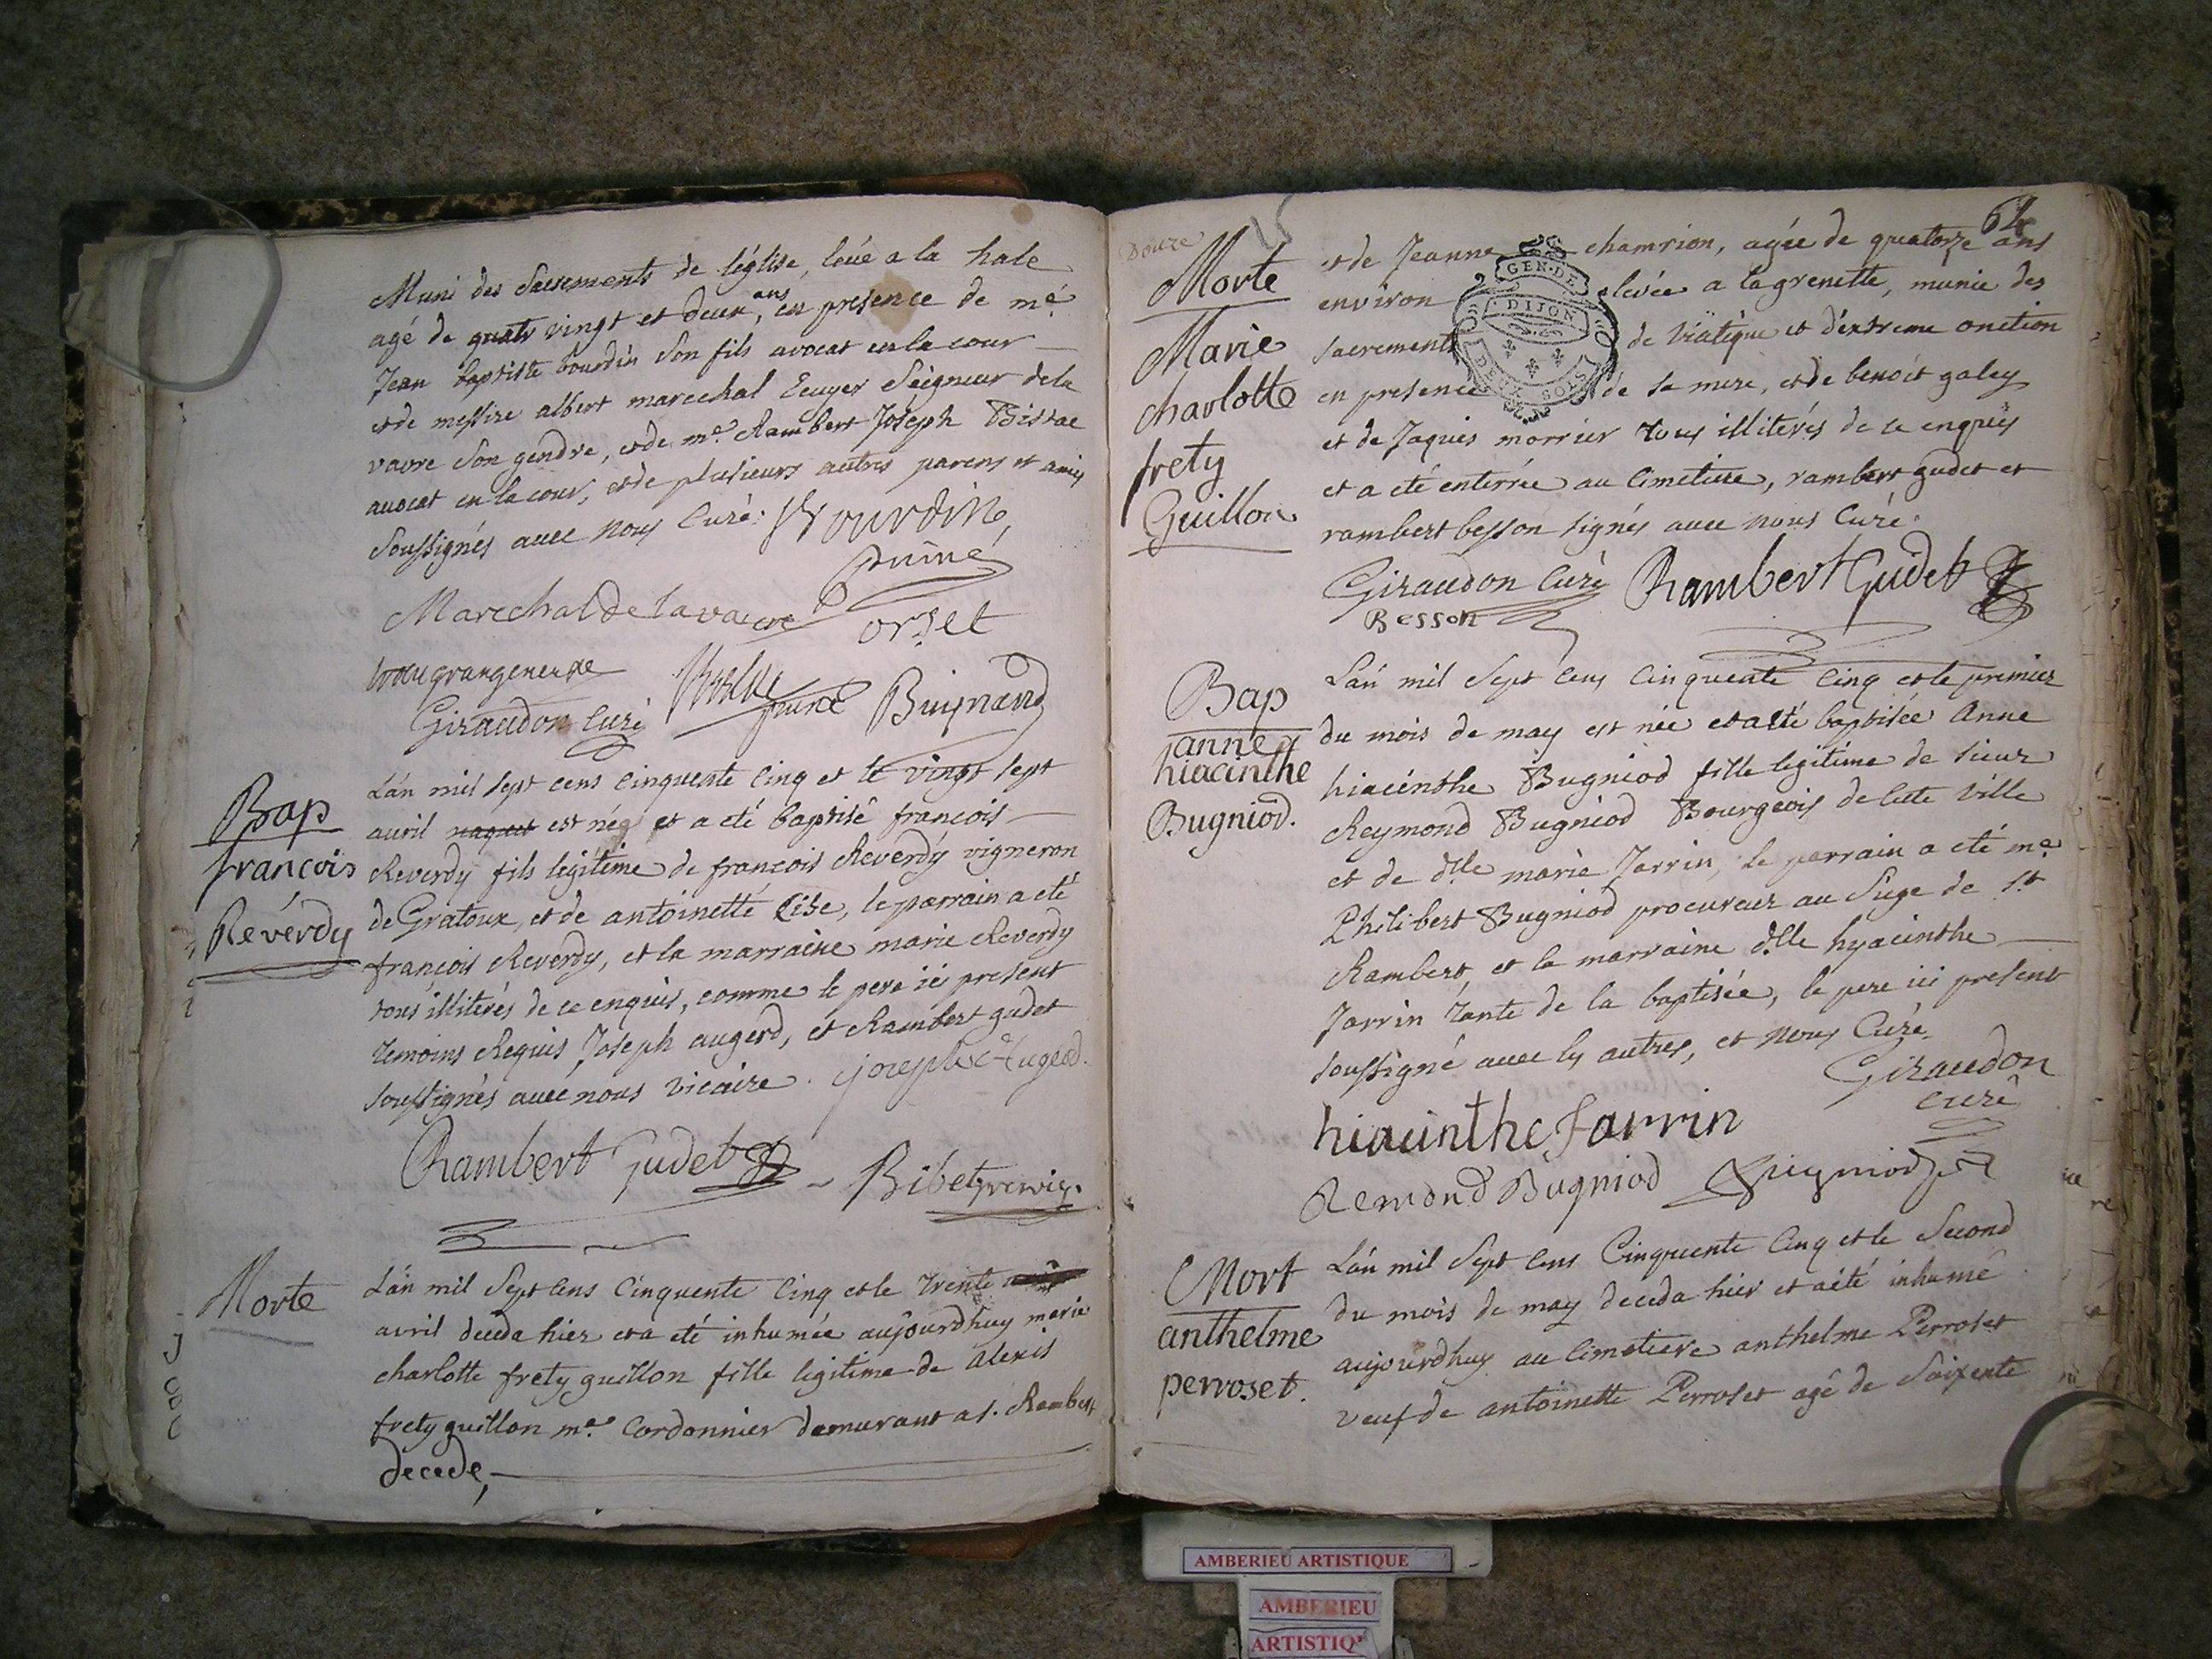 Muni des Sacrements de l'église, levé a la hale
agé de quatr vingt et deux ans, en presence de mé
Jean baptiste bourdin Son fils avocat en la cour
et de messire albert marechal Ecuyer Seigneur de la
vavre Son gendre, et de me. Rambert Joseph
avocat en la cour, et de plusieurs autres parens et amis
Soussignés avec nous Curé. Bourdin
puiné
Marechal de la vavre orset
Buynand
Giraudon Curé
Bap
francois
Réverdy
L'an mil sept cens cinquente cinq et le vingt sept
avril naquit est né et a eté baptisé francois
Reverdy fils légitime de francois Reverdy vigneron
de Gratoux, et de antoinette Cise, le parrain a eté
françois Reverdy, et la marraine marie Reverdy
tous illiterés de ce enquis, comme le pere ici present
temoins Requis, Joseph augerd, et Rambert gudet
soussignés avec nous vicaire. joseph Augerd.
Rambert Gudet Ribet
Morte
L'an mil Sept Cens Cinquente Cinq et le trente
avril deceda hier et a eté inhumée aujourdhuy marie
charlotte frety guillon fille legitime de alexis
frety guillon me. Cordonnier demurant a s. Rambert
decede,
Douze
64
Morte
Marie
charlotte
frety
Guillon
et de Jeanne chamrion, agée de quatorze ans
environ elevée a la grenette, munie des
sacrements de viatique et d'extreme onction
en presence de sa mere, et de benoit galey
et de Jaques morrier tous illiterés de ce enquis
et a eté enterrée au Cimetiere, rambert gudet et
rambert besson signés avec nous Curé.
GEN. DE
DIJON
DEUX SOLS
Giraudon Curé Rambert Gudet
Besson
Bap
anne
hiacinthe
Bugniod.
L'an mil Sept Cens Cinquente Cinq et le premier
du mois de may est née et a eté baptisée Anne
hiacinthe Bugniod fille legitime de sieur
Reymond Bugniod Bourgeois de cette ville
et de dlle marie Jarrin, le parrain a eté me.
Philibert Bugniod procureur au Siege de st
Rambert, et la marraine dlle hyacinthe
Jarrin tante de la baptisée, le pere ici present
soussigné avec les autres, et nous Curé.
Giraudon
curé
hiacinthe Jarrin
Remond Bugniod Bugniod
Mort
anthelme
perroset.
L'an mil Sept Cens Cinquente Cinq et le Second
du mois de may deceda hier et a eté inhumé
aujourdhuy au Cimetiere anthelme Perroset
veuf de antoinette Perroset agé de Soixente
AMBERIEU ARTISTIQUE
AMBERIEU
ARTISTIQ